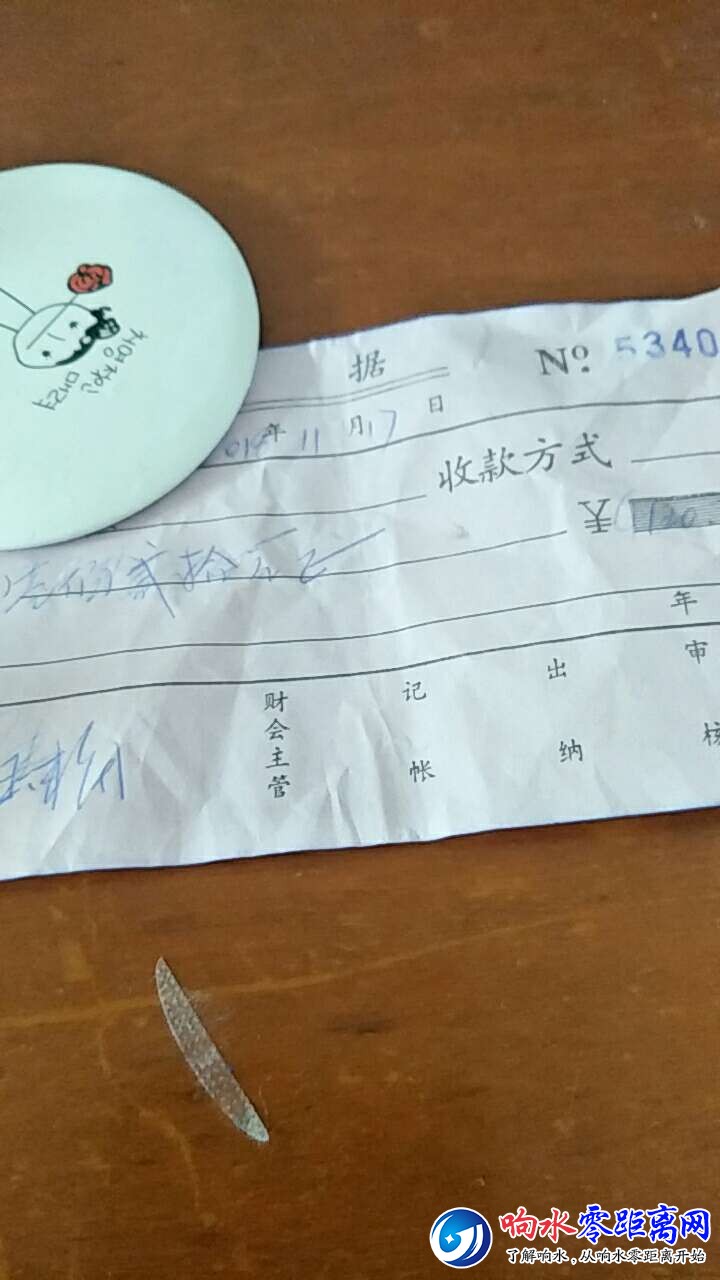 据 № 5340
年 11 月 17 日
收款方式
¥ 120
壹佰贰拾元
年
财会主管 记帐 出纳 审核
响水零距离网
了解响水，从响水零距离开始